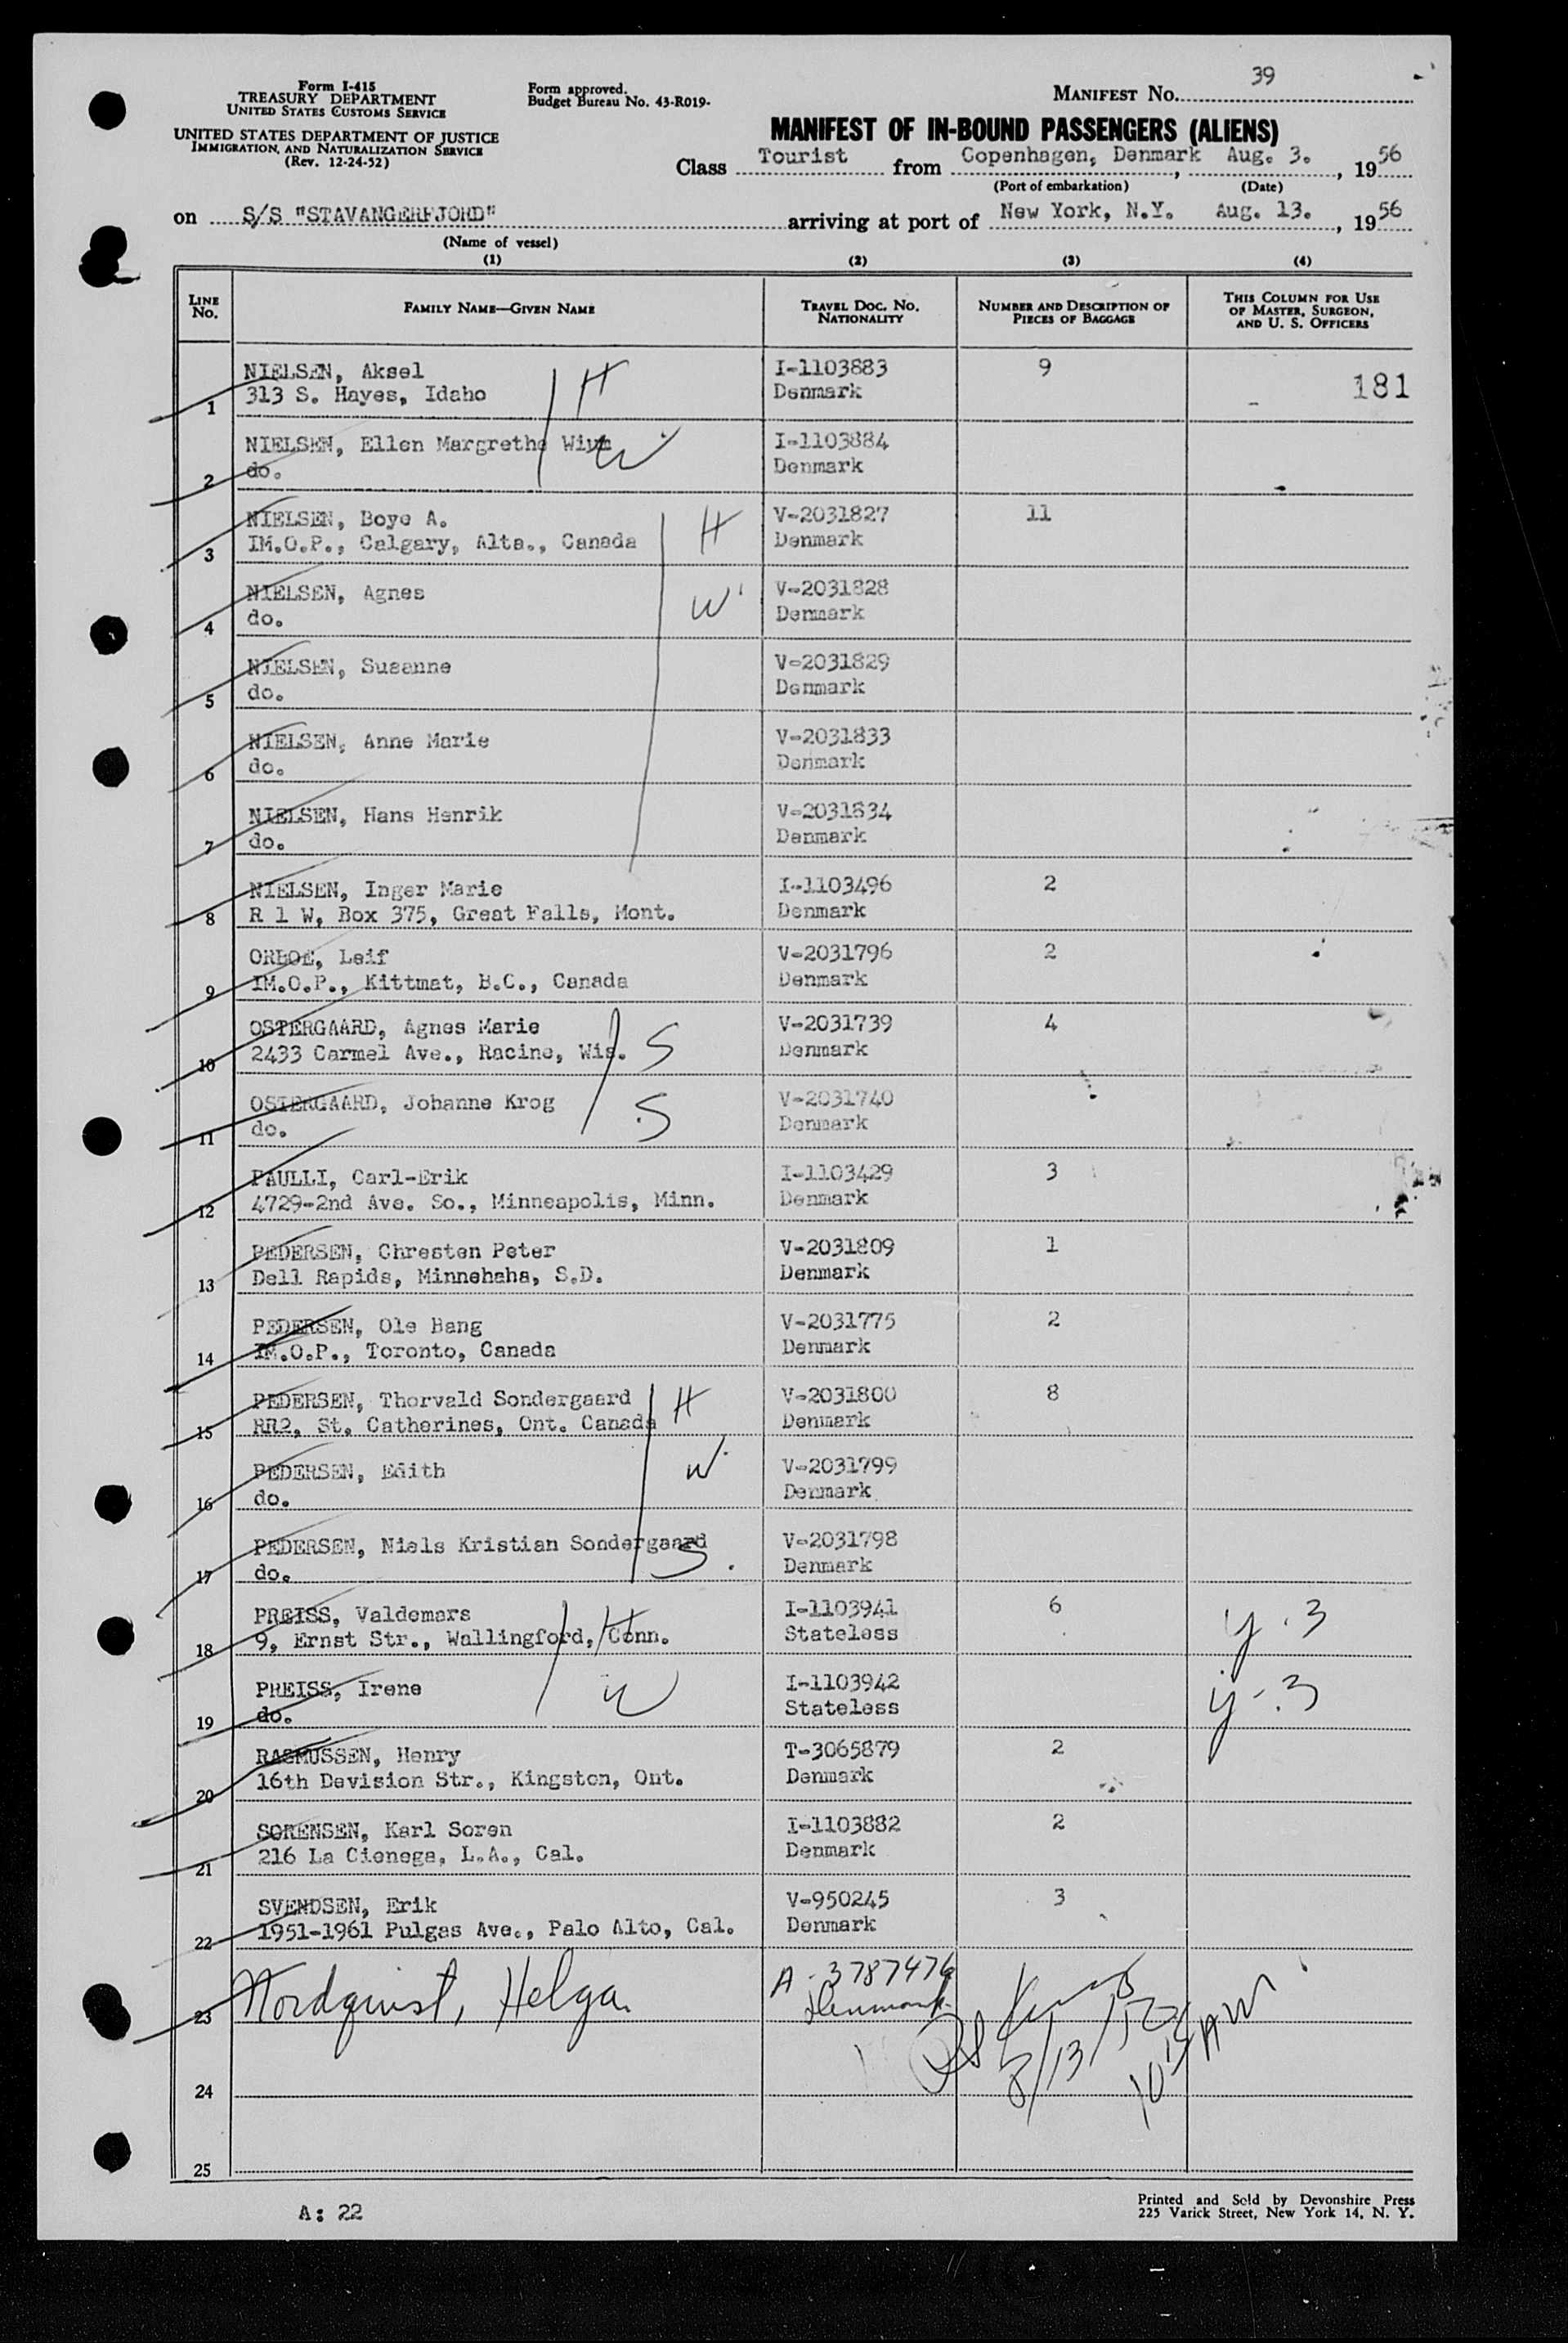 39
Form I-415
TREASURY DEPARTMENT
UNITED STATES CUSTOMS SERVICE
Form approved.
Budget Bureau No. 43-R019-
MANIFEST No.
UNITED STATES DEPARTMENT OF JUSTICE
IMMIGRATION, AND NATURALIZATION SERVICE
(Rev. 12-24-52)
MANIFEST OF IN-BOUND PASSENGERS (ALIENS)
Class Tourist from Copenhagen, Denmark, Aug. 3., 1956
(Port of embarkation) (Date)
on S/S "STAVANGERFJORD" arriving at port of New York, N.Y. Aug. 13., 1956
(Name of vessel)
(1) (2) (3) (4)
LINE No. FAMILY NAME—GIVEN NAME TRAVEL DOC. No. NATIONALITY NUMBER AND DESCRIPTION OF PIECES OF BAGGAGE THIS COLUMN FOR USE OF MASTER, SURGEON, AND U. S. OFFICERS
NIELSEN, Aksel H I-1103883 9
1 313 S. Hayes, Idaho Denmark 181
NIELSEN, Ellen Margrethe Wium W I-1103884
2 do. Denmark
NIELSEN, Boye A. H V-2031827 11
3 IM.O.P., Calgary, Alta., Canada Denmark
NIELSEN, Agnes W V-2031828
4 do. Denmark
NIELSEN, Susanne V-2031829
5 do. Denmark
NIELSEN, Anne Marie V-2031833
6 do. Denmark
NIELSEN, Hans Henrik V-2031834
7 do. Denmark
NIELSEN, Inger Marie I-1103496 2
8 R 1 W, Box 375, Great Falls, Mont. Denmark
ORBOE, Leif V-2031796 2
9 IM.O.P., Kittmat, B.C., Canada Denmark
OSTERGAARD, Agnes Marie V-2031739 4
10 2433 Carmel Ave., Racine, Wis. S Denmark
OSTERGAARD, Johanne Krog S V-2031740
11 do. Denmark
PAULLI, Carl-Erik I-1103429 3
12 4729-2nd Ave. So., Minneapolis, Minn. Denmark
PEDERSEN, Chresten Peter V-2031809 1
13 Dell Rapids, Minnehaha, S.D. Denmark
PEDERSEN, Ole Bang V-2031775 2
14 IM.O.P., Toronto, Canada Denmark
PEDERSEN, Thorvald Sondergaard H V-2031800 8
15 RR2, St. Catherines, Ont. Canada Denmark
PEDERSEN, Edith W V-2031799
16 do. Denmark
PEDERSEN, Niels Kristian Sondergaard S V-2031798
17 do. Denmark
PREISS, Valdemars H I-1103941 6 y.3
18 9, Ernst Str., Wallingford, Conn. Stateless
PREISS, Irene W I-1103942 y-.3
19 do. Stateless
RASMUSSEN, Henry T-3065879 2
20 16th Devision Str., Kingston, Ont. Denmark
SORENSEN, Karl Soren I-1103882 2
21 216 La Cienega, L.A., Cal. Denmark
SVENDSEN, Erik V-950245 3
22 1951-1961 Pulgas Ave., Palo Alto, Cal. Denmark
23 Nordqvist, Helga A-3787476
Denmark
8/13/ 10 15 AM
24
25
A: 22
Printed and Sold by Devonshire Press
225 Varick Street, New York 14, N. Y.